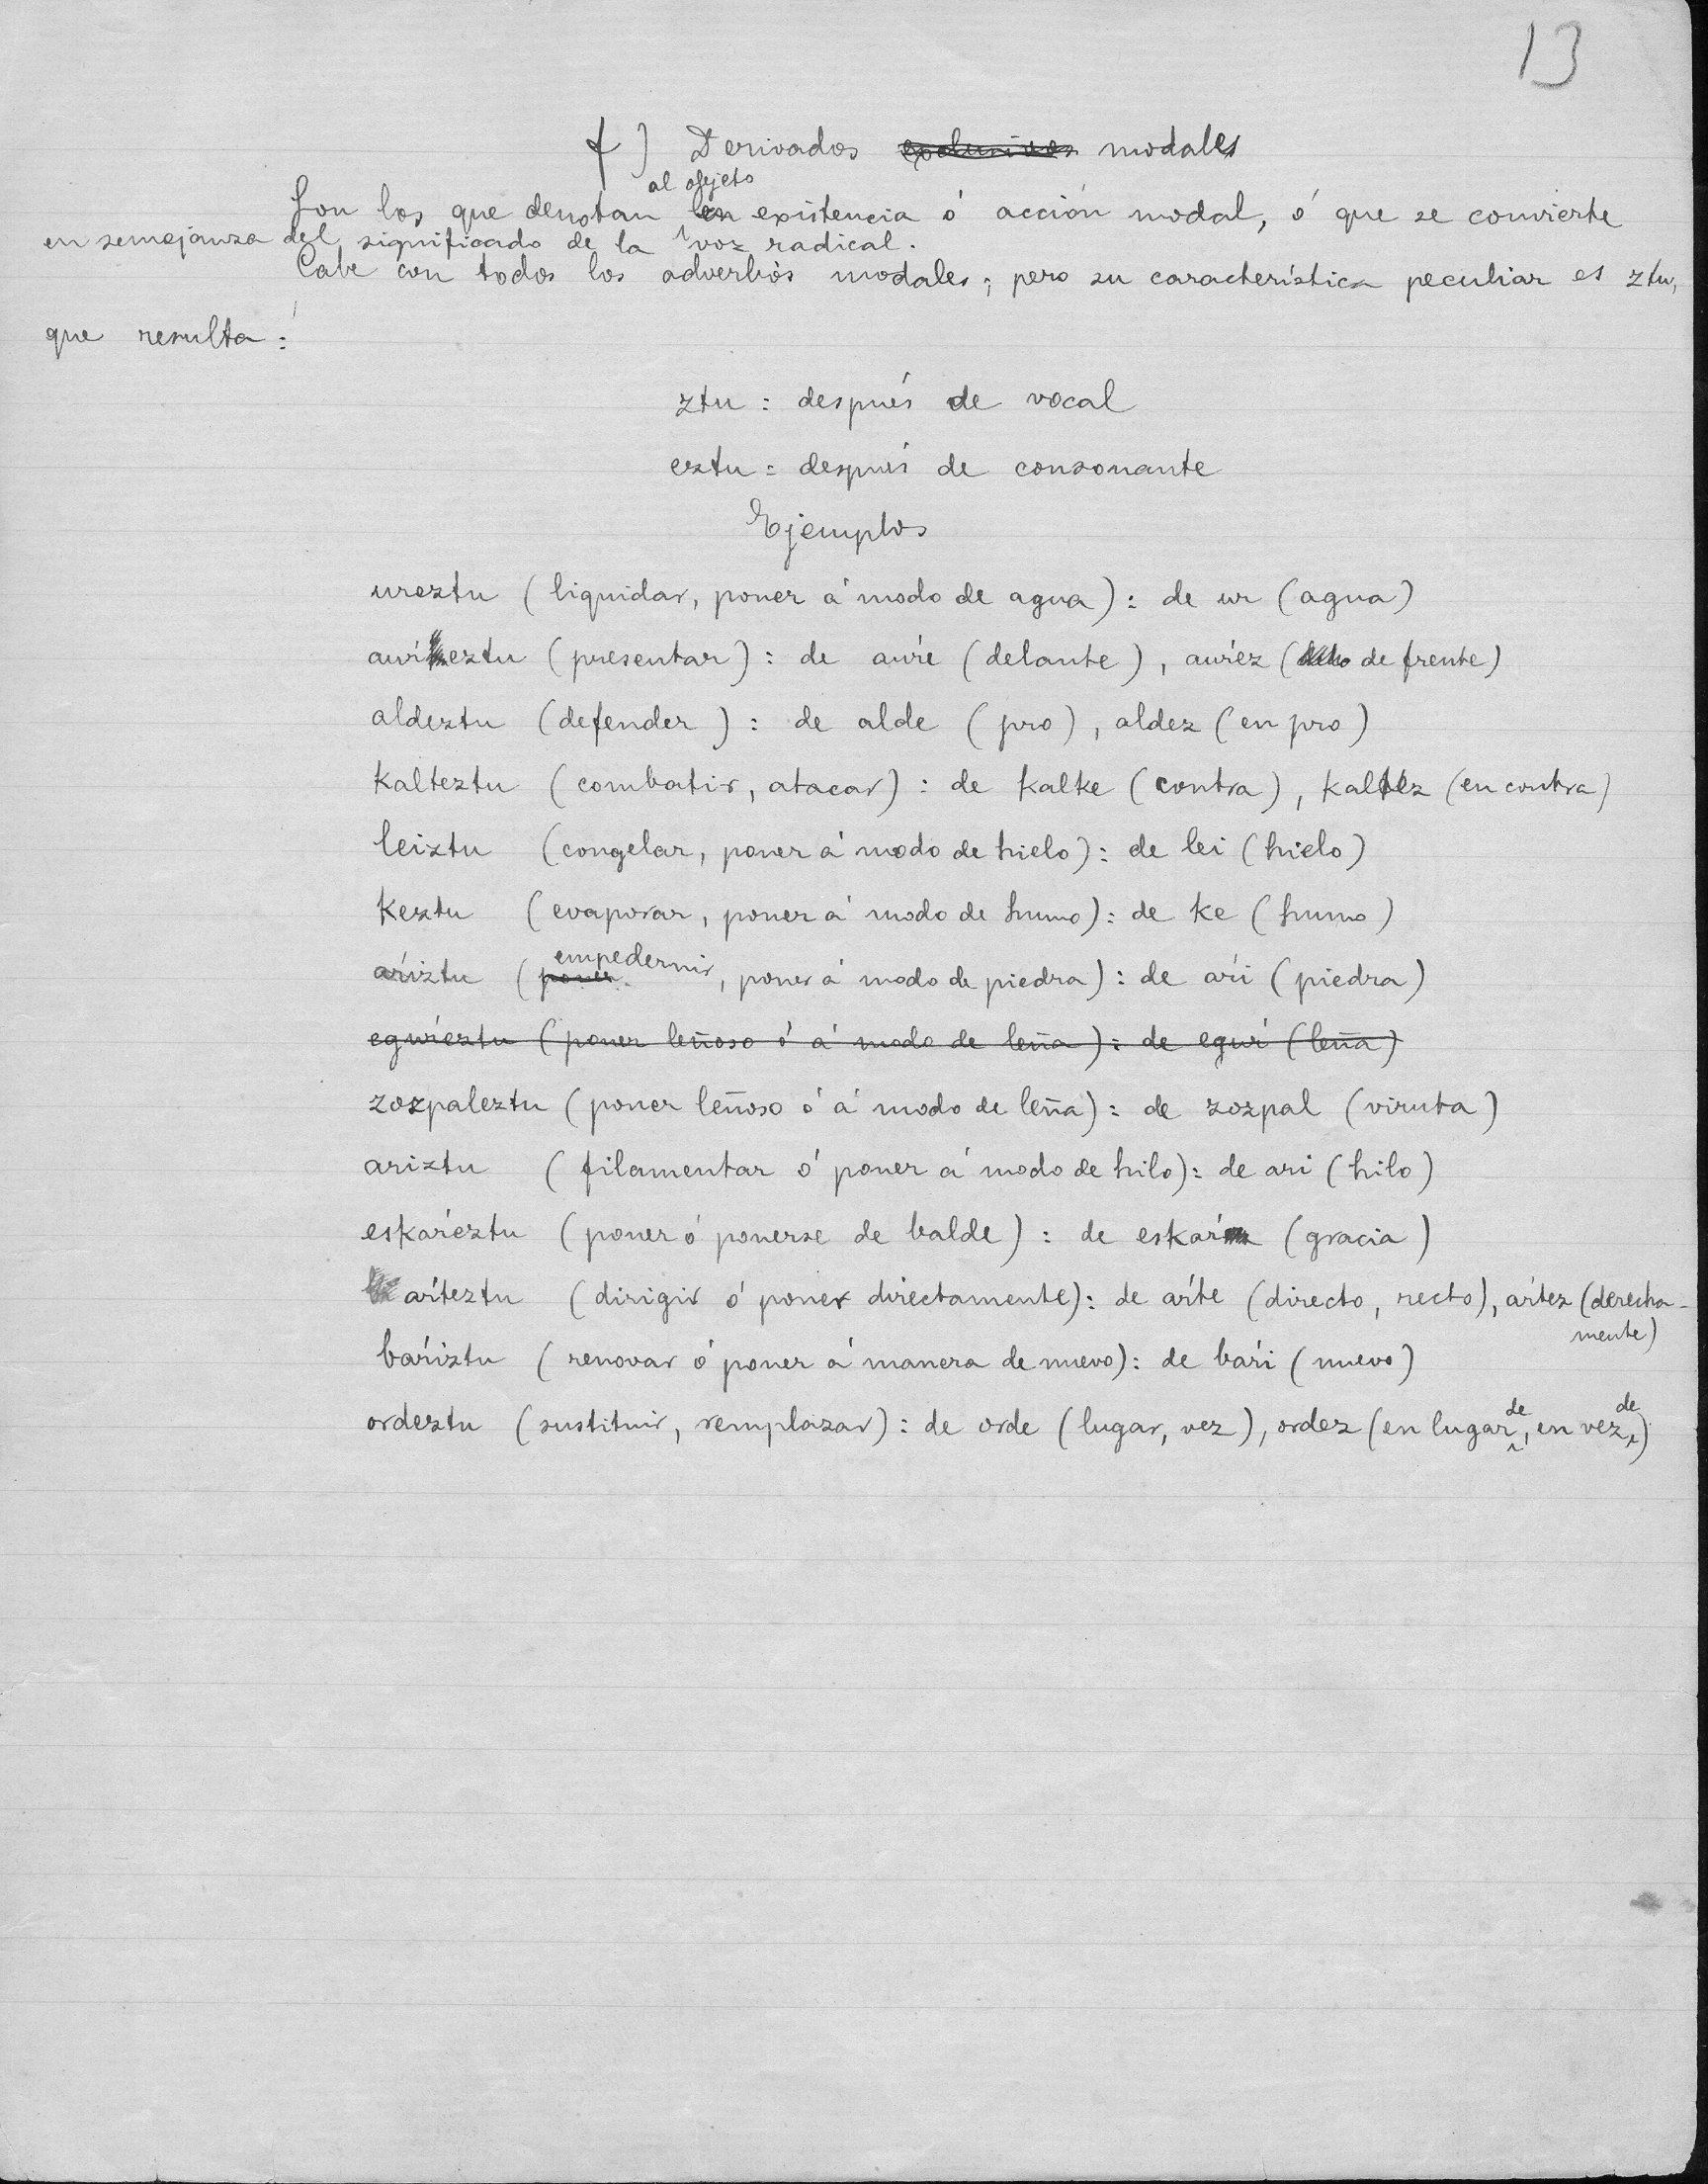 13
f) Derivados exclusivos modales
al objeto
Son los que denotan en existencia ó acción modal, ó que se convierte
en semejanza del significado de la voz radical.
Cabe con todos los adverbios modales; pero su característica peculiar es ztu,
que resulta:
ztu: después de vocal
eztu: después de consonante
Ejemplos
ureztu (liquidar, poner á modo de agua): de ur (agua)
auŕeztu (presentar): de auŕe (delante), auŕez (de frente)
aldeztu (defender): de alde (pro), aldez (en pro)
kalteztu (combatir, atacar): de kalke (contra), kaltez (en contra)
leiztu (congelar, poner á modo de hielo): de lei (hielo)
keztu (evaporar, poner á modo de humo): de ke (humo)
empedernir
aŕiztu (poner, poner á modo de piedra): de aŕi (piedra)
eguŕeztu (poner leñoso ó á modo de leña): de eguŕ (leña)
zozpaleztu (poner leñoso ó á modo de leña): de zozpal (viruta)
ariztu (filamentar ó poner á modo de hilo): de ari (hilo)
eskaŕeztu (poner ó ponerse de balde): de eskaŕ (gracia)
aŕteztu (dirigir ó poner directamente): de aŕte (directo, recto), aŕtez (derecha-
mente)
baŕiztu (renovar ó poner á manera de nuevo): de baŕi (nuevo)
ordeztu (sustituir, remplazar): de orde (lugar, vez), ordez (en lugar de, en vez de)